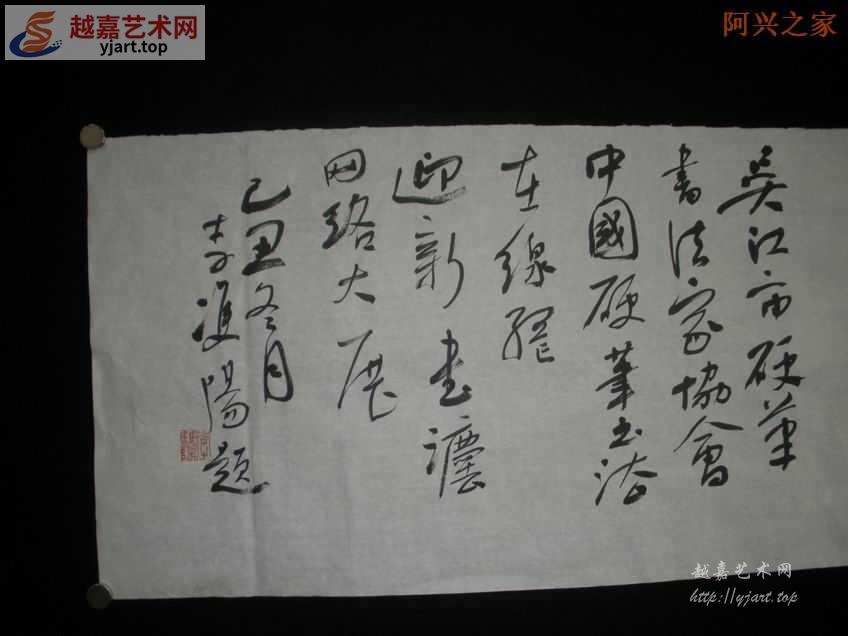 越嘉艺术网
yjart.top
阿兴之家
吴江市硬笔
書法家協會
中國硬筆书法
在線
迎新書灋
网络大展
己丑冬月
李双陽题
越嘉艺术网
http://yjart.top